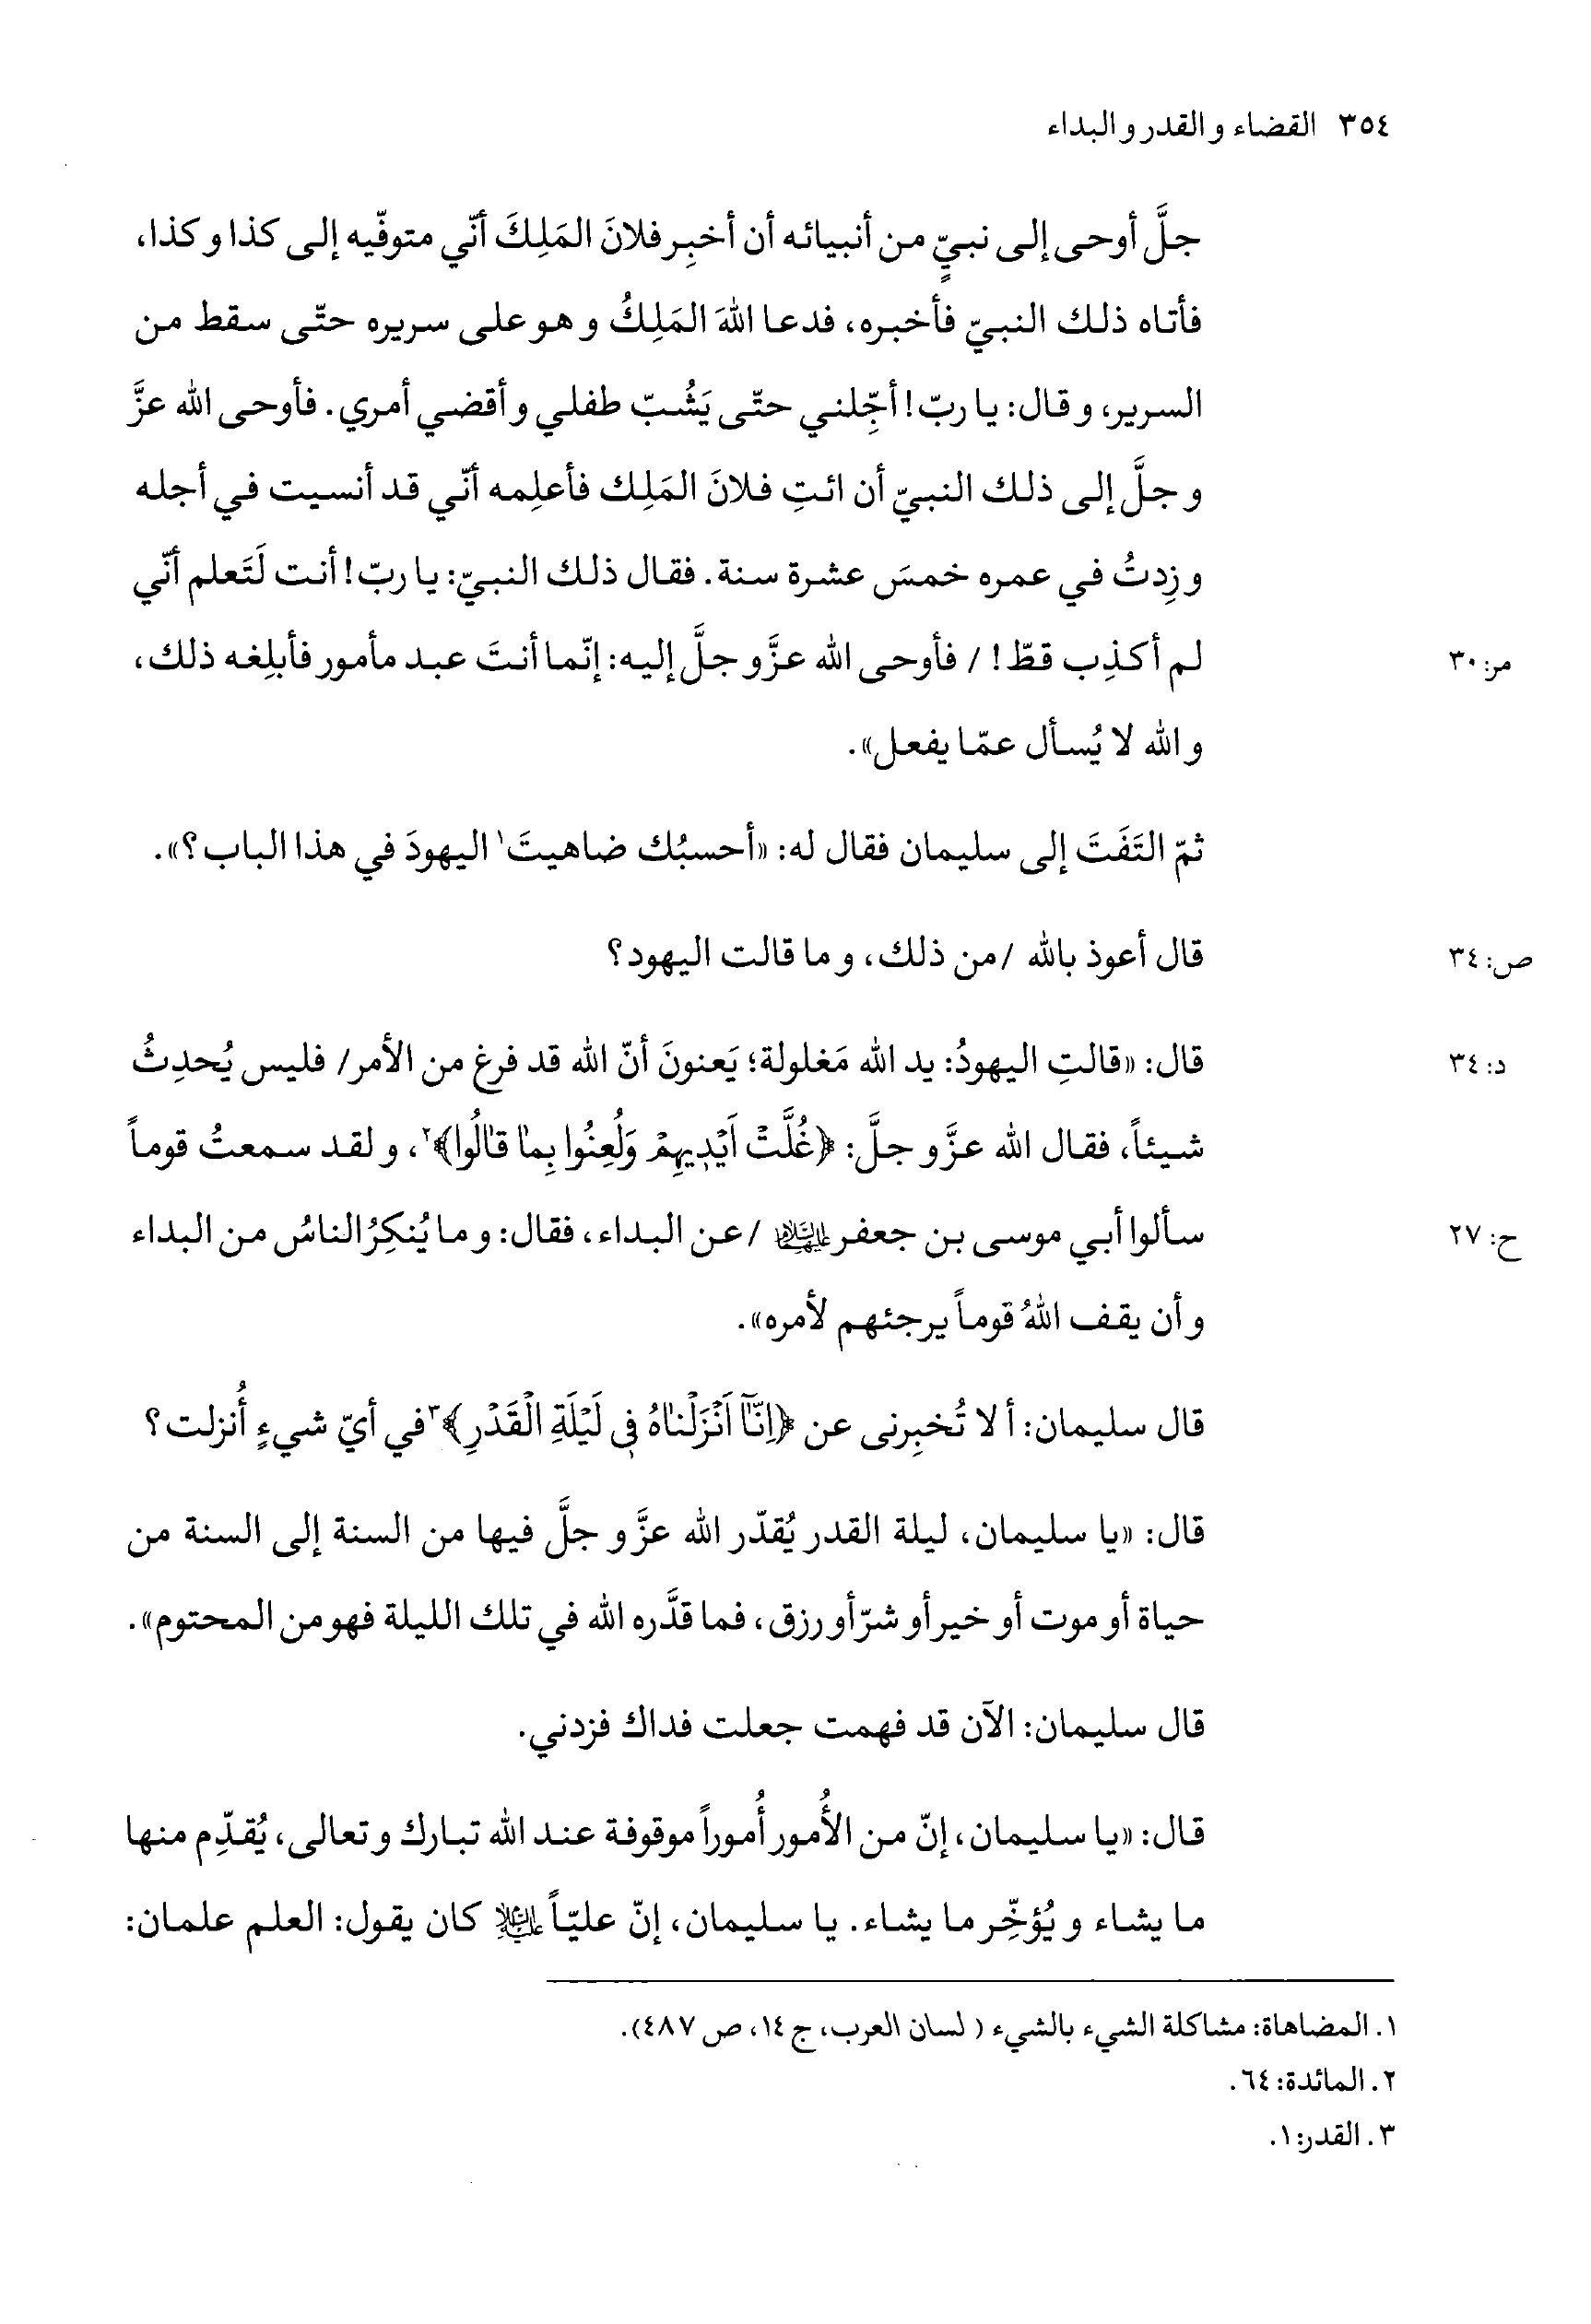 ٣٥٤ القضاء و القدر و البداء
جلَّ أوحى إلى نبيٍّ من أنبيائه أن أخبِر فلانَ المَلِكَ أنّي متوفّيه إلى كذا و كذا،
فأتاه ذلك النبيّ فأخبره، فدعا اللهَ المَلِكُ و هو على سريره حتّى سقط من
السرير، و قال: يا ربّ! أجِّلني حتّى يَشُبّ طفلي و أقضي أمري. فأوحى الله عزَّ
و جلَّ إلى ذلك النبيّ أن ائتِ فلانَ المَلِك فأعلِمه أنّي قد أنسيت في أجله
و زِدتُ في عمره خمسَ عشرة سنة. فقال ذلك النبيّ: يا ربّ! أنت لَتَعلم أنّي
لم أكذِب قطّ! / فأوحى الله عزَّ و جلَّ إليه: إنّما أنتَ عبد مأمور فأبلِغه ذلك،
مر: ٣٠
و الله لا يُسأل عمّا يفعل».
ثمّ التَفَتَ إلى سليمان فقال له: «أحسبُك ضاهيتَ١ اليهودَ في هذا الباب؟».
قال أعوذ بالله /من ذلك، و ما قالت اليهود؟
ص: ٣٤
قال: «قالتِ اليهودُ: يد الله مَغلولة؛ يَعنونَ أنّ الله قد فرغ من الأمر/ فليس يُحدِثُ
د: ٣٤
شيئاً، فقال الله عزَّ و جلَّ: ﴿غُلَّتْ اَيْدِيهِمْ وَلُعِنُوا بِمٰا قٰالُوا﴾٢، و لقد سمعتُ قوماً
سألوا أبي موسى بن جعفر عليهما السلام /عن البداء، فقال: و ما يُنكِرُ الناسُ من البداء
ح: ٢٧
و أن يقف اللهُ قوماً يرجئهم لأمره».
قال سليمان: أ لا تُخبِرنى عن ﴿اِنّٰا اَنْزَلْنٰاهُ فِى لَيْلَةِ الْقَدْرِ﴾٣ في أيّ شيءٍ أُنزلت؟
قال: «يا سليمان، ليلة القدر يُقدّر الله عزَّ و جلَّ فيها من السنة إلى السنة من
حياة أو موت أو خير أو شرّ أو رزق، فما قدَّره الله في تلك الليلة فهو من المحتوم».
قال سليمان: الآن قد فهمت جعلت فداك فزدني.
قال: «يا سليمان، إنّ من الأُمور أُموراً موقوفة عند الله تبارك و تعالى، يُقدِّم منها
ما يشاء و يُؤخِّر ما يشاء. يا سليمان، إنّ عليّاً عليه السلام كان يقول: العلم علمان:
١. المضاهاة: مشاكلة الشيء بالشيء ( لسان العرب، ج ١٤، ص ٤٨٧).
٢. المائدة: ٦٤.
٣. القدر: ١.